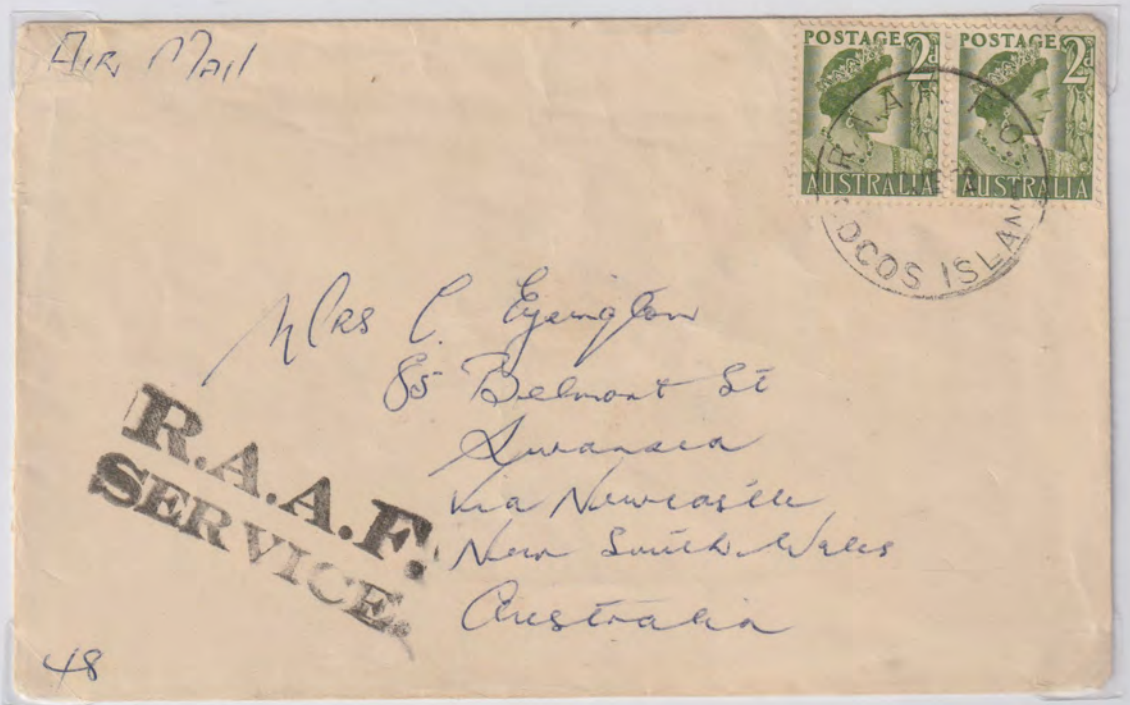 Air Mail
POSTAGE 2d POSTAGE 2d
AUSTRALIA AUSTRALIA
R.A.A.F. P.O.
COCOS ISLAND
Mrs C. Eyington
85 Belmont St
Swansea
Via Newcastle
New South Wales
Australia
R.A.A.F.
SERVICE.
48